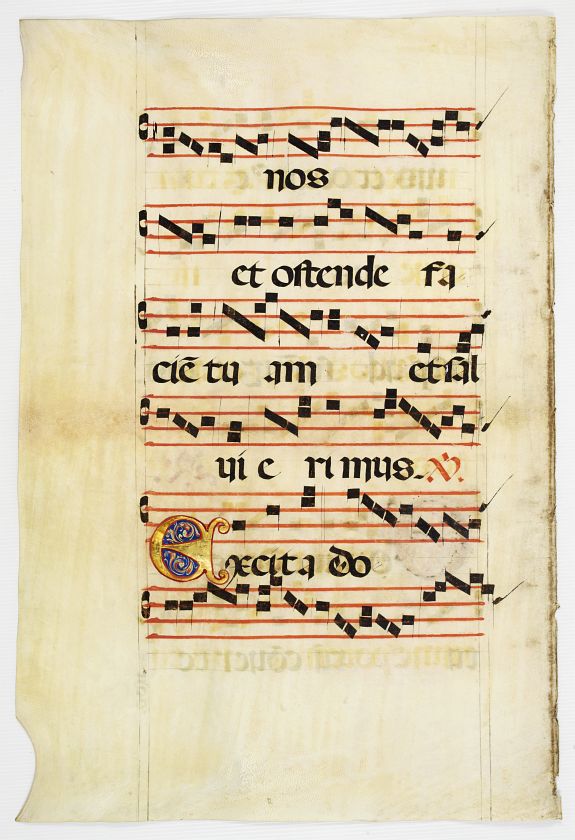 nos
et ostende fa
ciē tu am et sal
ui e rimus. V.
Excita do